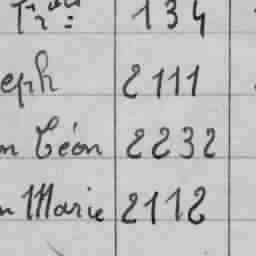 134
eph 2111
n Léon 2232
n Marie 2112